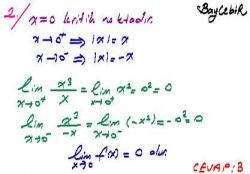 2/ x=0 kritik noktadır.
BayCebir
x→0⁺ ⇒ |x|=x
x→0⁻ ⇒ |x|=-x
lim x→0⁺ x³/x = lim x→0⁺ x² = 0² = 0
lim x→0⁻ x³/-x = lim x→0⁻ (-x²) = -0² = 0
lim x→0 f(x) = 0 olur.
CEVAP: B